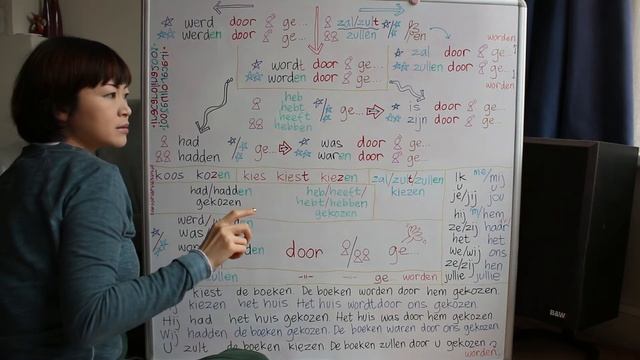 werd door ge... zal/zult
werden door ge... zullen /en worden
wordt door ge... zal door ge... worden
worden door ge... zullen door ge... worden
heb
hebt
heeft
hebben
ge... is door ge...
zijn door ge...
had
hadden ge... was door ge...
waren door ge...
koos kozen kies kiest kiezen zal/zult/zullen
kiezen
had/hadden
gekozen
heb/heeft/
hebt/hebben
gekozen
werd/
was
door ge...
ge... worden
Ik me/mij
je/jij jou
hij 'm/hem
ze/zij haar
het het
we/wij ons
ze/zij hen
jullie jullie
kiest de boeken. De boeken worden door hem gekozen.
kiezen het huis. Het huis wordt door ons gekozen.
Hij had het huis gekozen. Het huis was door hem gekozen.
Wij hadden de boeken gekozen. De boeken waren door ons gekozen.
U zult de boeken kiezen. De boeken zullen door u gekozen worden?
B&W